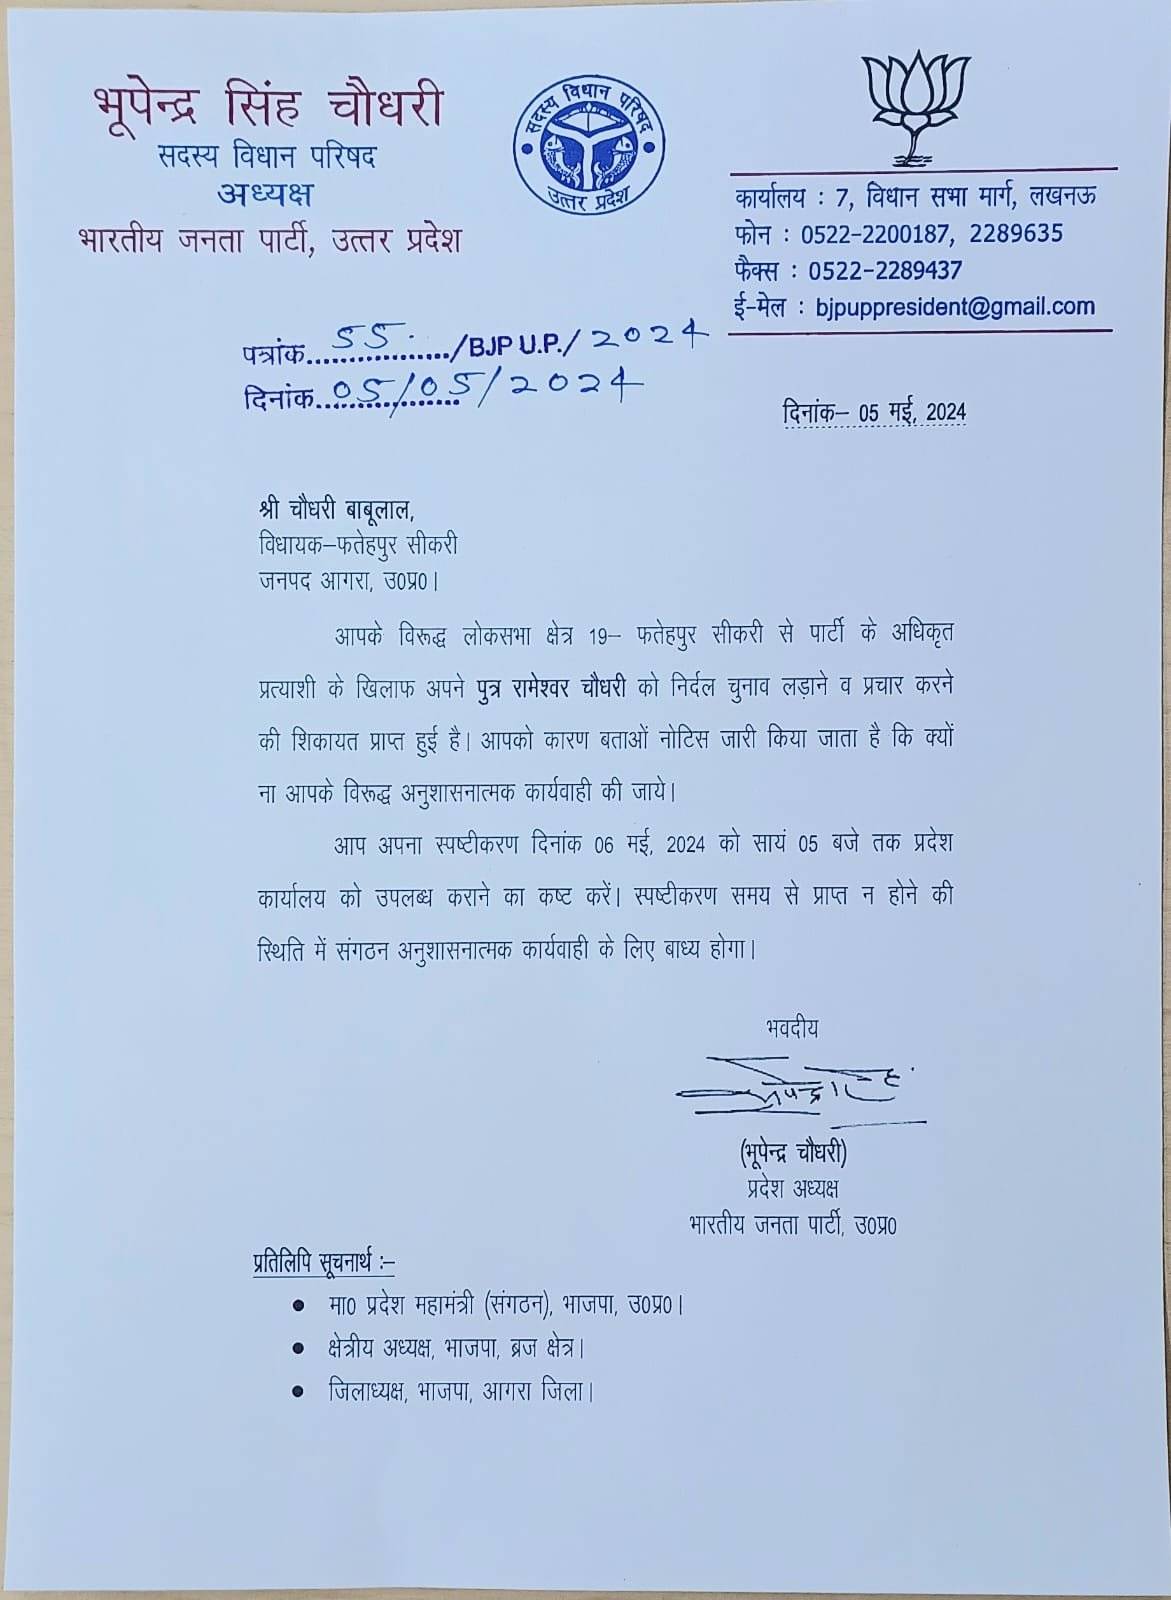 भूपेन्द्र सिंह चौधरी
सदस्य विधान परिषद
अध्यक्ष
भारतीय जनता पार्टी, उत्तर प्रदेश
सदस्य विधान परिषद
उत्तर प्रदेश
कार्यालय : 7, विधान सभा मार्ग, लखनऊ
फोन : 0522-2200187, 2289635
फैक्स : 0522-2289437
ई-मेल : bjpuppresident@gmail.com
पत्रांक...55.../BJP U.P./2024
दिनांक...05/05/2024
दिनांक– 05 मई, 2024
श्री चौधरी बाबूलाल,
विधायक–फतेहपुर सीकरी
जनपद आगरा, उ0प्र0।
आपके विरूद्ध लोकसभा क्षेत्र 19– फतेहपुर सीकरी से पार्टी के अधिकृत
प्रत्याशी के खिलाफ अपने पुत्र रामेश्वर चौधरी को निर्दल चुनाव लड़ाने व प्रचार करने
की शिकायत प्राप्त हुई है। आपको कारण बताओं नोटिस जारी किया जाता है कि क्यों
ना आपके विरूद्ध अनुशासनात्मक कार्यवाही की जाये।
आप अपना स्पष्टीकरण दिनांक 06 मई, 2024 को सायं 05 बजे तक प्रदेश
कार्यालय को उपलब्ध कराने का कष्ट करें। स्पष्टीकरण समय से प्राप्त न होने की
स्थिति में संगठन अनुशासनात्मक कार्यवाही के लिए बाध्य होगा।
भवदीय
(भूपेन्द्र चौधरी)
प्रदेश अध्यक्ष
भारतीय जनता पार्टी, उ0प्र0
प्रतिलिपि सूचनार्थ :–
● मा0 प्रदेश महामंत्री (संगठन), भाजपा, उ0प्र0।
● क्षेत्रीय अध्यक्ष, भाजपा, ब्रज क्षेत्र।
● जिलाध्यक्ष, भाजपा, आगरा जिला।